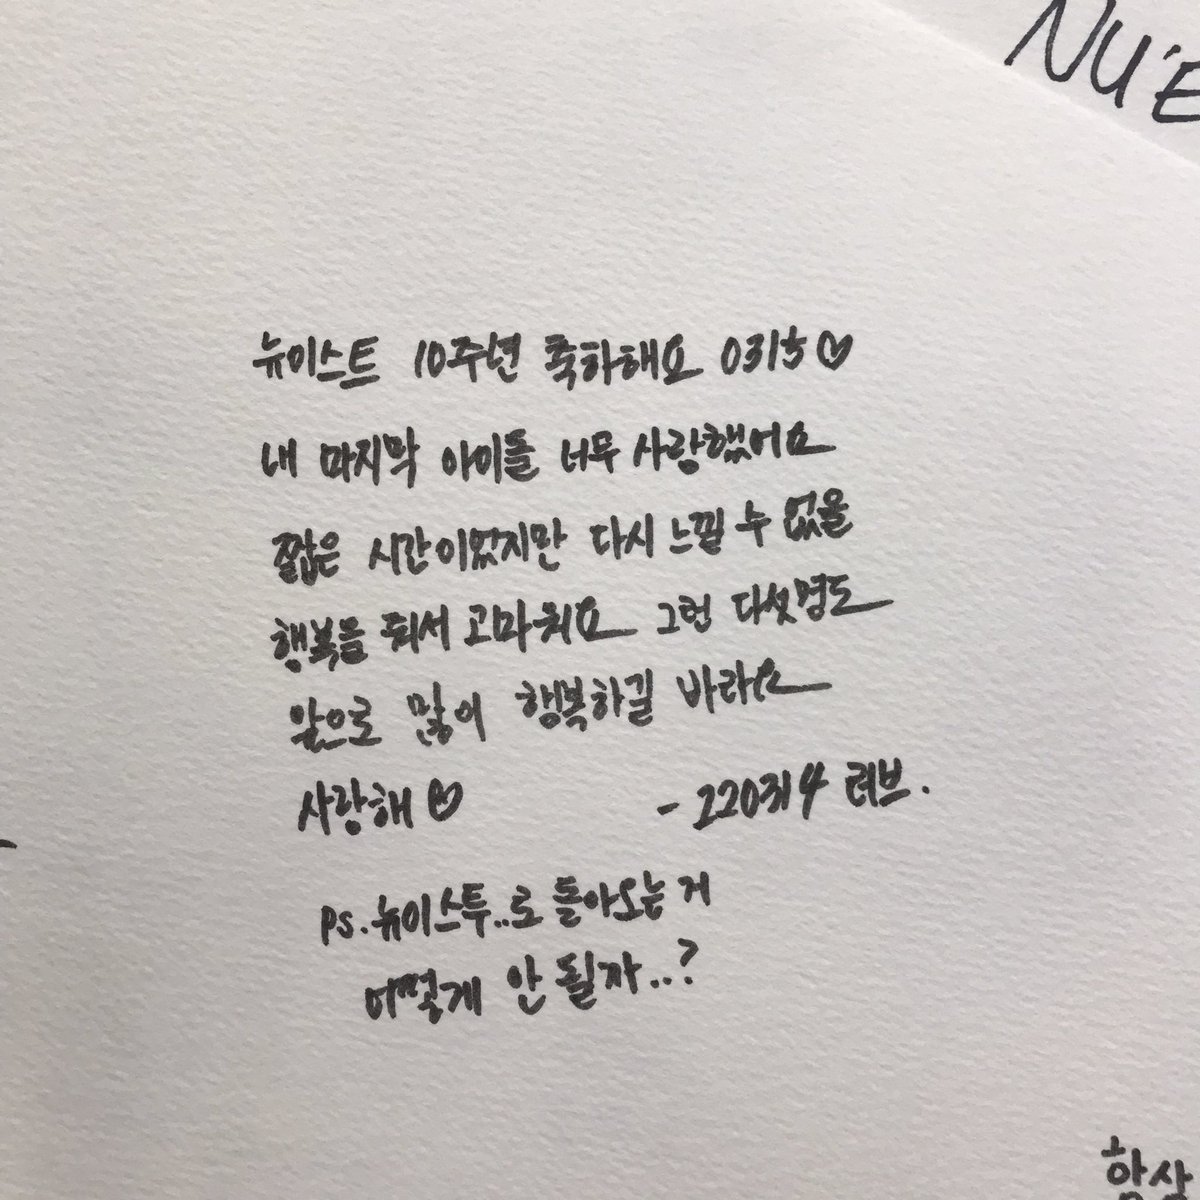 NU'E
뉴이스트 10주년 축하해요 0315♡
내 마지막 아이돌 너무 사랑했어요
짧은 시간이었지만 다시 느낄 수 없을
행복을 줘서 고마워요 그런 다섯명도
앞으로 많이 행복하길 바라요
사랑해♡ - 220314 러브.
ps.뉴이스투..로 돌아오는 거
어떻게 안 될까..?
항상